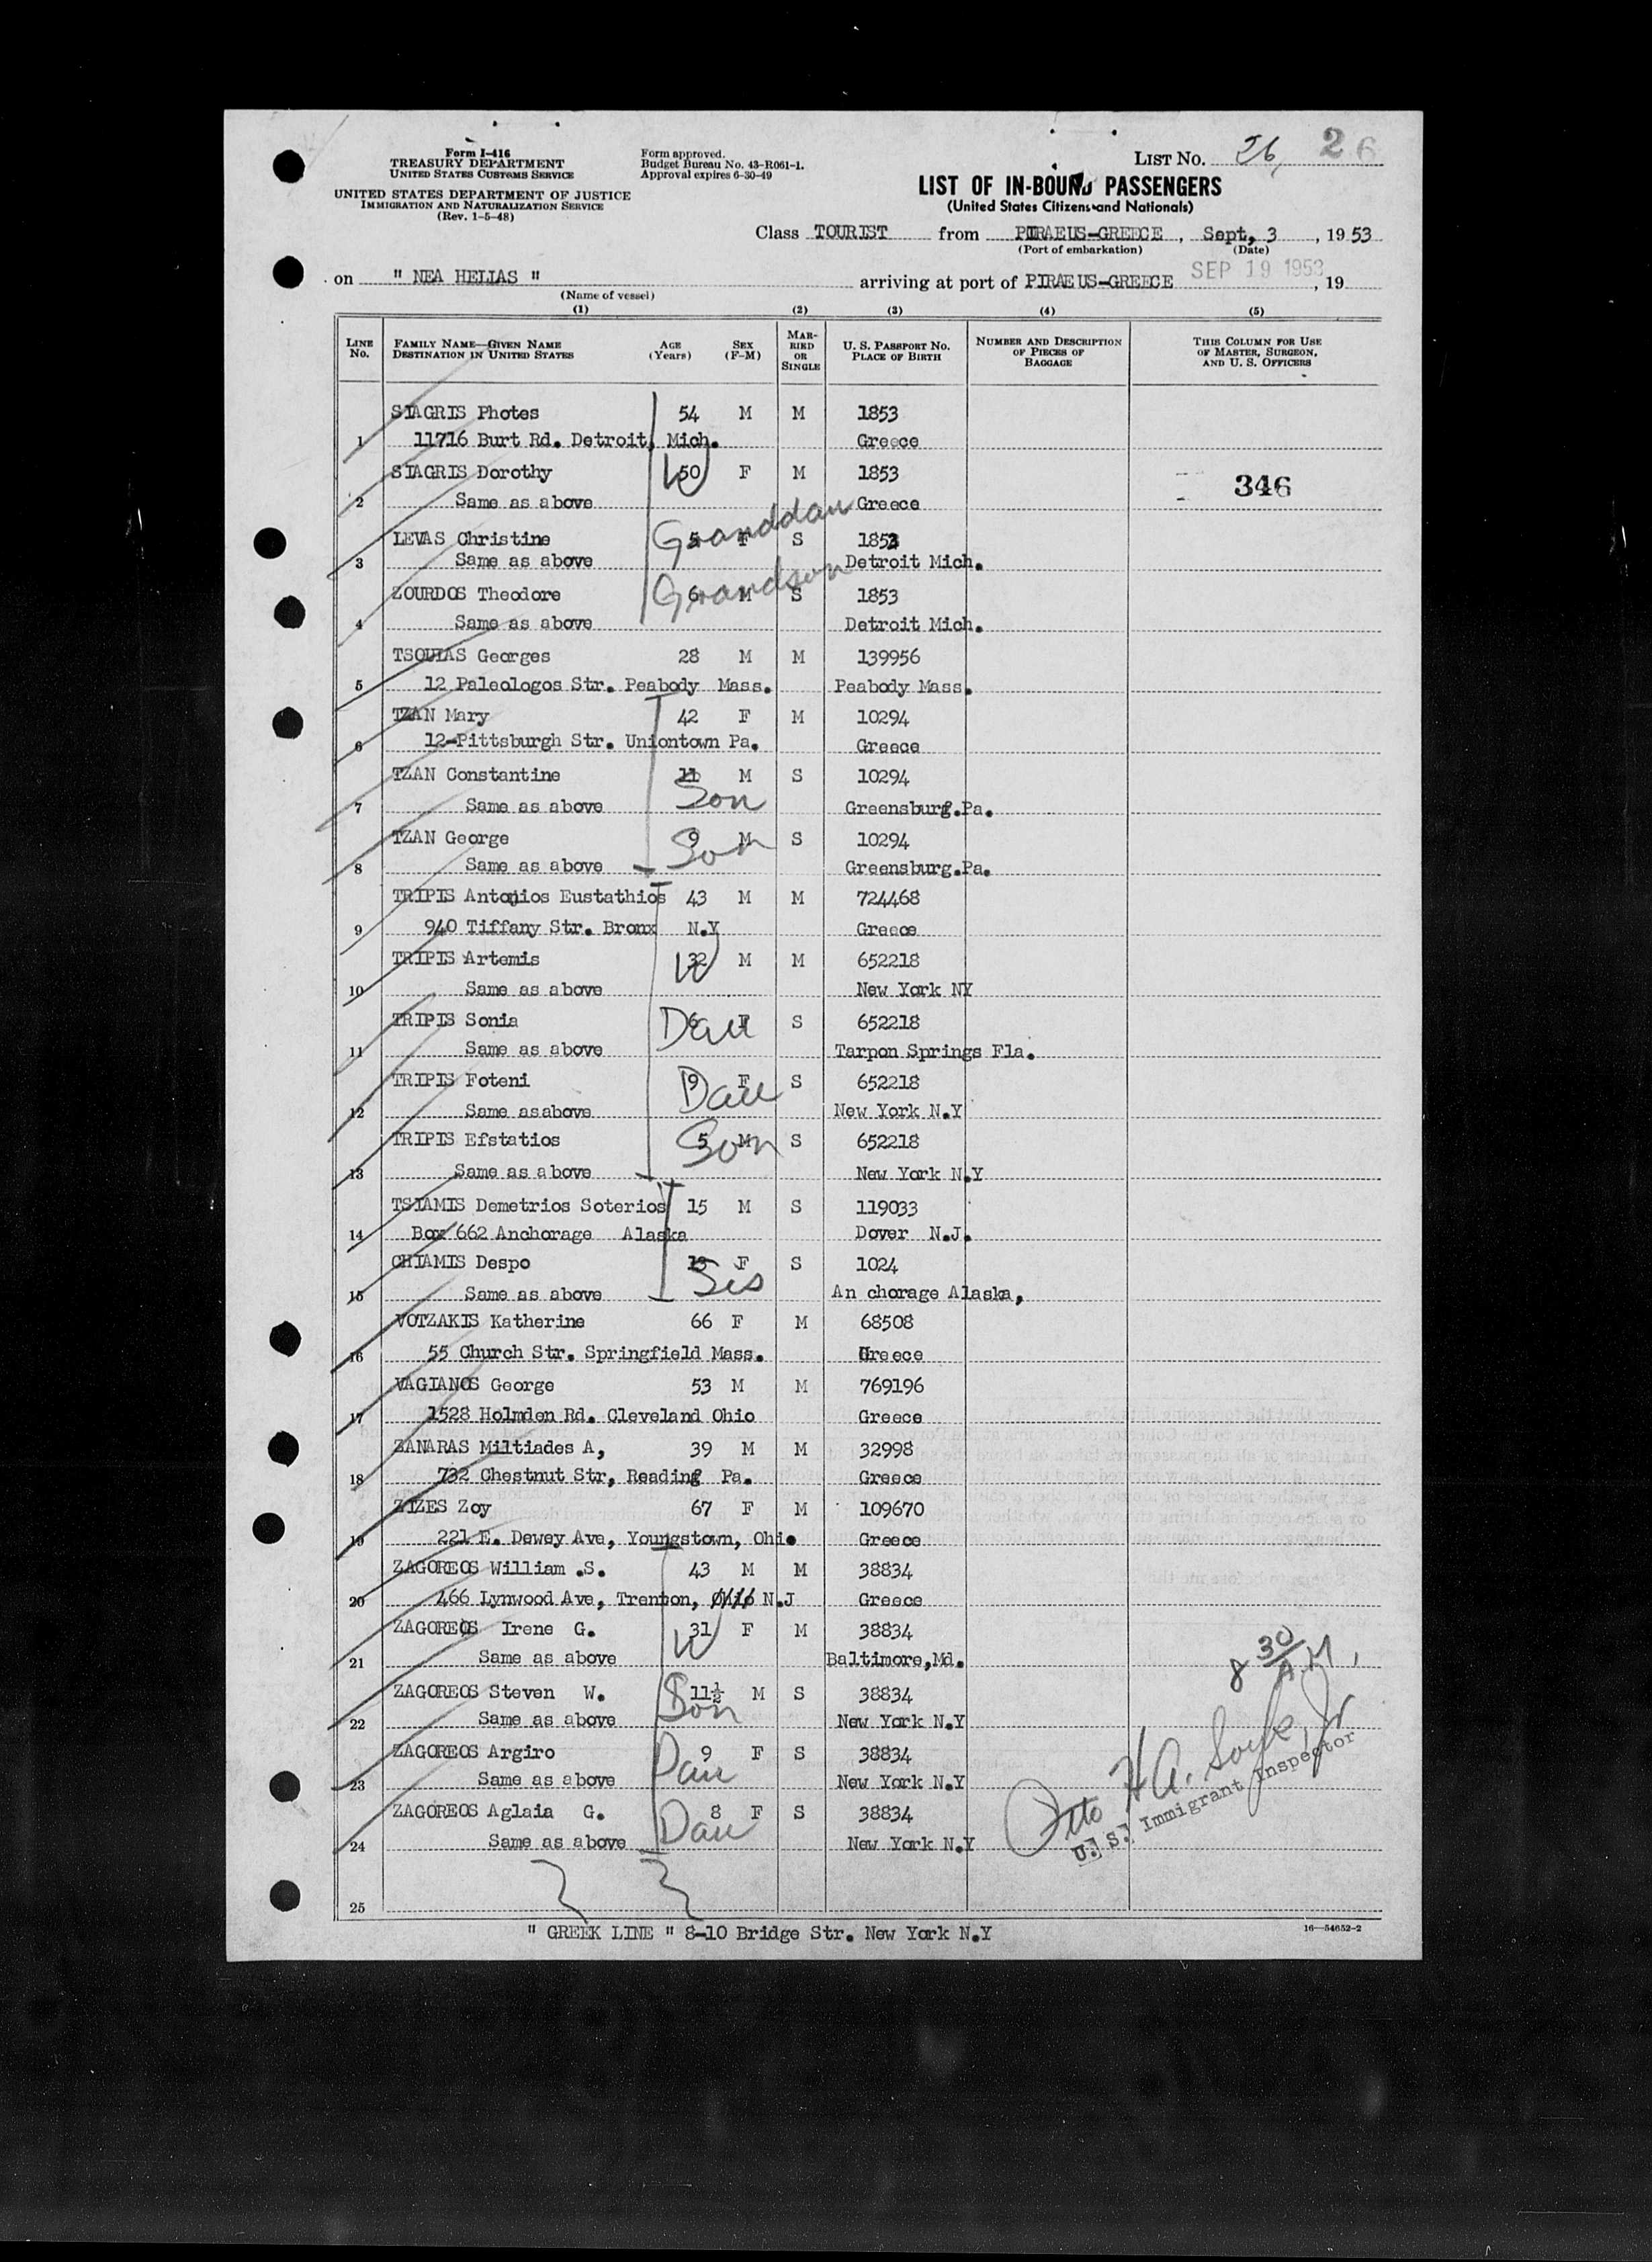 Form I-416
TREASURY DEPARTMENT
UNITED STATES CUSTOMS SERVICE
UNITED STATES DEPARTMENT OF JUSTICE
IMMIGRATION AND NATURALIZATION SERVICE
(Rev. 1-5-48)
Form approved.
Budget Bureau No. 43-R061-1.
Approval expires 6-30-49
LIST NO. 26, 26
LIST OF IN-BOUND PASSENGERS
(United States Citizens and Nationals)
Class TOURIST from PIRAEUS-GREECE , Sept, 3 , 19 53
(Port of embarkation) (Date)
on " NEA HELIAS " arriving at port of PIRAEUS-GREECE SEP 19 1953 , 19
(Name of vessel)
(1) (2) (3) (4) (5)
LINE No. FAMILY NAME—GIVEN NAME DESTINATION IN UNITED STATES AGE (Years) SEX (F-M) MARRIED OR SINGLE U. S. PASSPORT NO. PLACE OF BIRTH NUMBER AND DESCRIPTION OF PIECES OF BAGGAGE THIS COLUMN FOR USE OF MASTER, SURGEON, AND U. S. OFFICERS
SIAGRIS Photes 54 M M 1853
1 11716 Burt Rd. Detroit, Mich. Greece
SIAGRIS Dorothy 50 W F M 1853 346
2 Same as above Greece
LEVAS Christine 5 F Granddau S 1853
3 Same as above Detroit Mich.
ZOURDOS Theodore 6 M Grandson S 1853
4 Same as above Detroit Mich.
TSOUIAS Georges 28 M M 139956
5 12 Paleologos Str. Peabody Mass. Peabody Mass.
TZAN Mary 42 F M 10294
6 12-Pittsburgh Str. Uniontown Pa. Greece
TZAN Constantine 11 M S 10294
7 Same as above Son Greensburg.Pa.
TZAN George 9 M Son S 10294
8 Same as above Greensburg.Pa.
TRIPIS Antonios Eustathios 43 M M 724468
9 940 Tiffany Str. Bronx N.Y Greece
TRIPIS Artemis 32 W M M 652218
10 Same as above New York NY
TRIPIS Sonia 6 F Dau S 652218
11 Same as above Tarpon Springs Fla.
TRIPIS Foteni 9 F Dau S 652218
12 Same asabove New York N.Y
TRIPIS Efstatios 5 M Son S 652218
13 Same as above New York N.Y
TSIAMIS Demetrios Soterios 15 M S 119033
14 Box 662 Anchorage Alaska Dover N.J.
CHIAMIS Despo 13 F S 1024
15 Same as above Sis An chorage Alaska,
VOTZAKIS Katherine 66 F M 68508
16 55 Church Str. Springfield Mass. Greece
VAGIANOS George 53 M M 769196
17 1528 Holmden Rd. Cleveland Ohio Greece
ZANARAS Miltiades A, 39 M M 32998
18 732 Chestnut Str, Reading Pa. Greece
ZIZES Zoy 67 F M 109670
19 221 E. Dewey Ave, Youngstown, Ohio Greece
ZAGOREOS William .S. 43 M M 38834
20 466 Lynwood Ave, Trenton, Ohio N.J Greece
ZAGOREOS Irene G. 31 W F M 38834
21 Same as above Baltimore,Md.
8 30/A.M.
ZAGOREOS Steven W. 11½ M S 38834
22 Same as above Son New York N.Y
ZAGOREOS Argiro 9 F S 38834
23 Same as above Dau New York N.Y
ZAGOREOS Aglaia G. 8 F S 38834
24 Same as above Dau New York N.Y
Otto H.A. Jr
U. S. Immigrant Inspector
25
" GREEK LINE " 8-10 Bridge Str. New York N.Y
16—54652-2